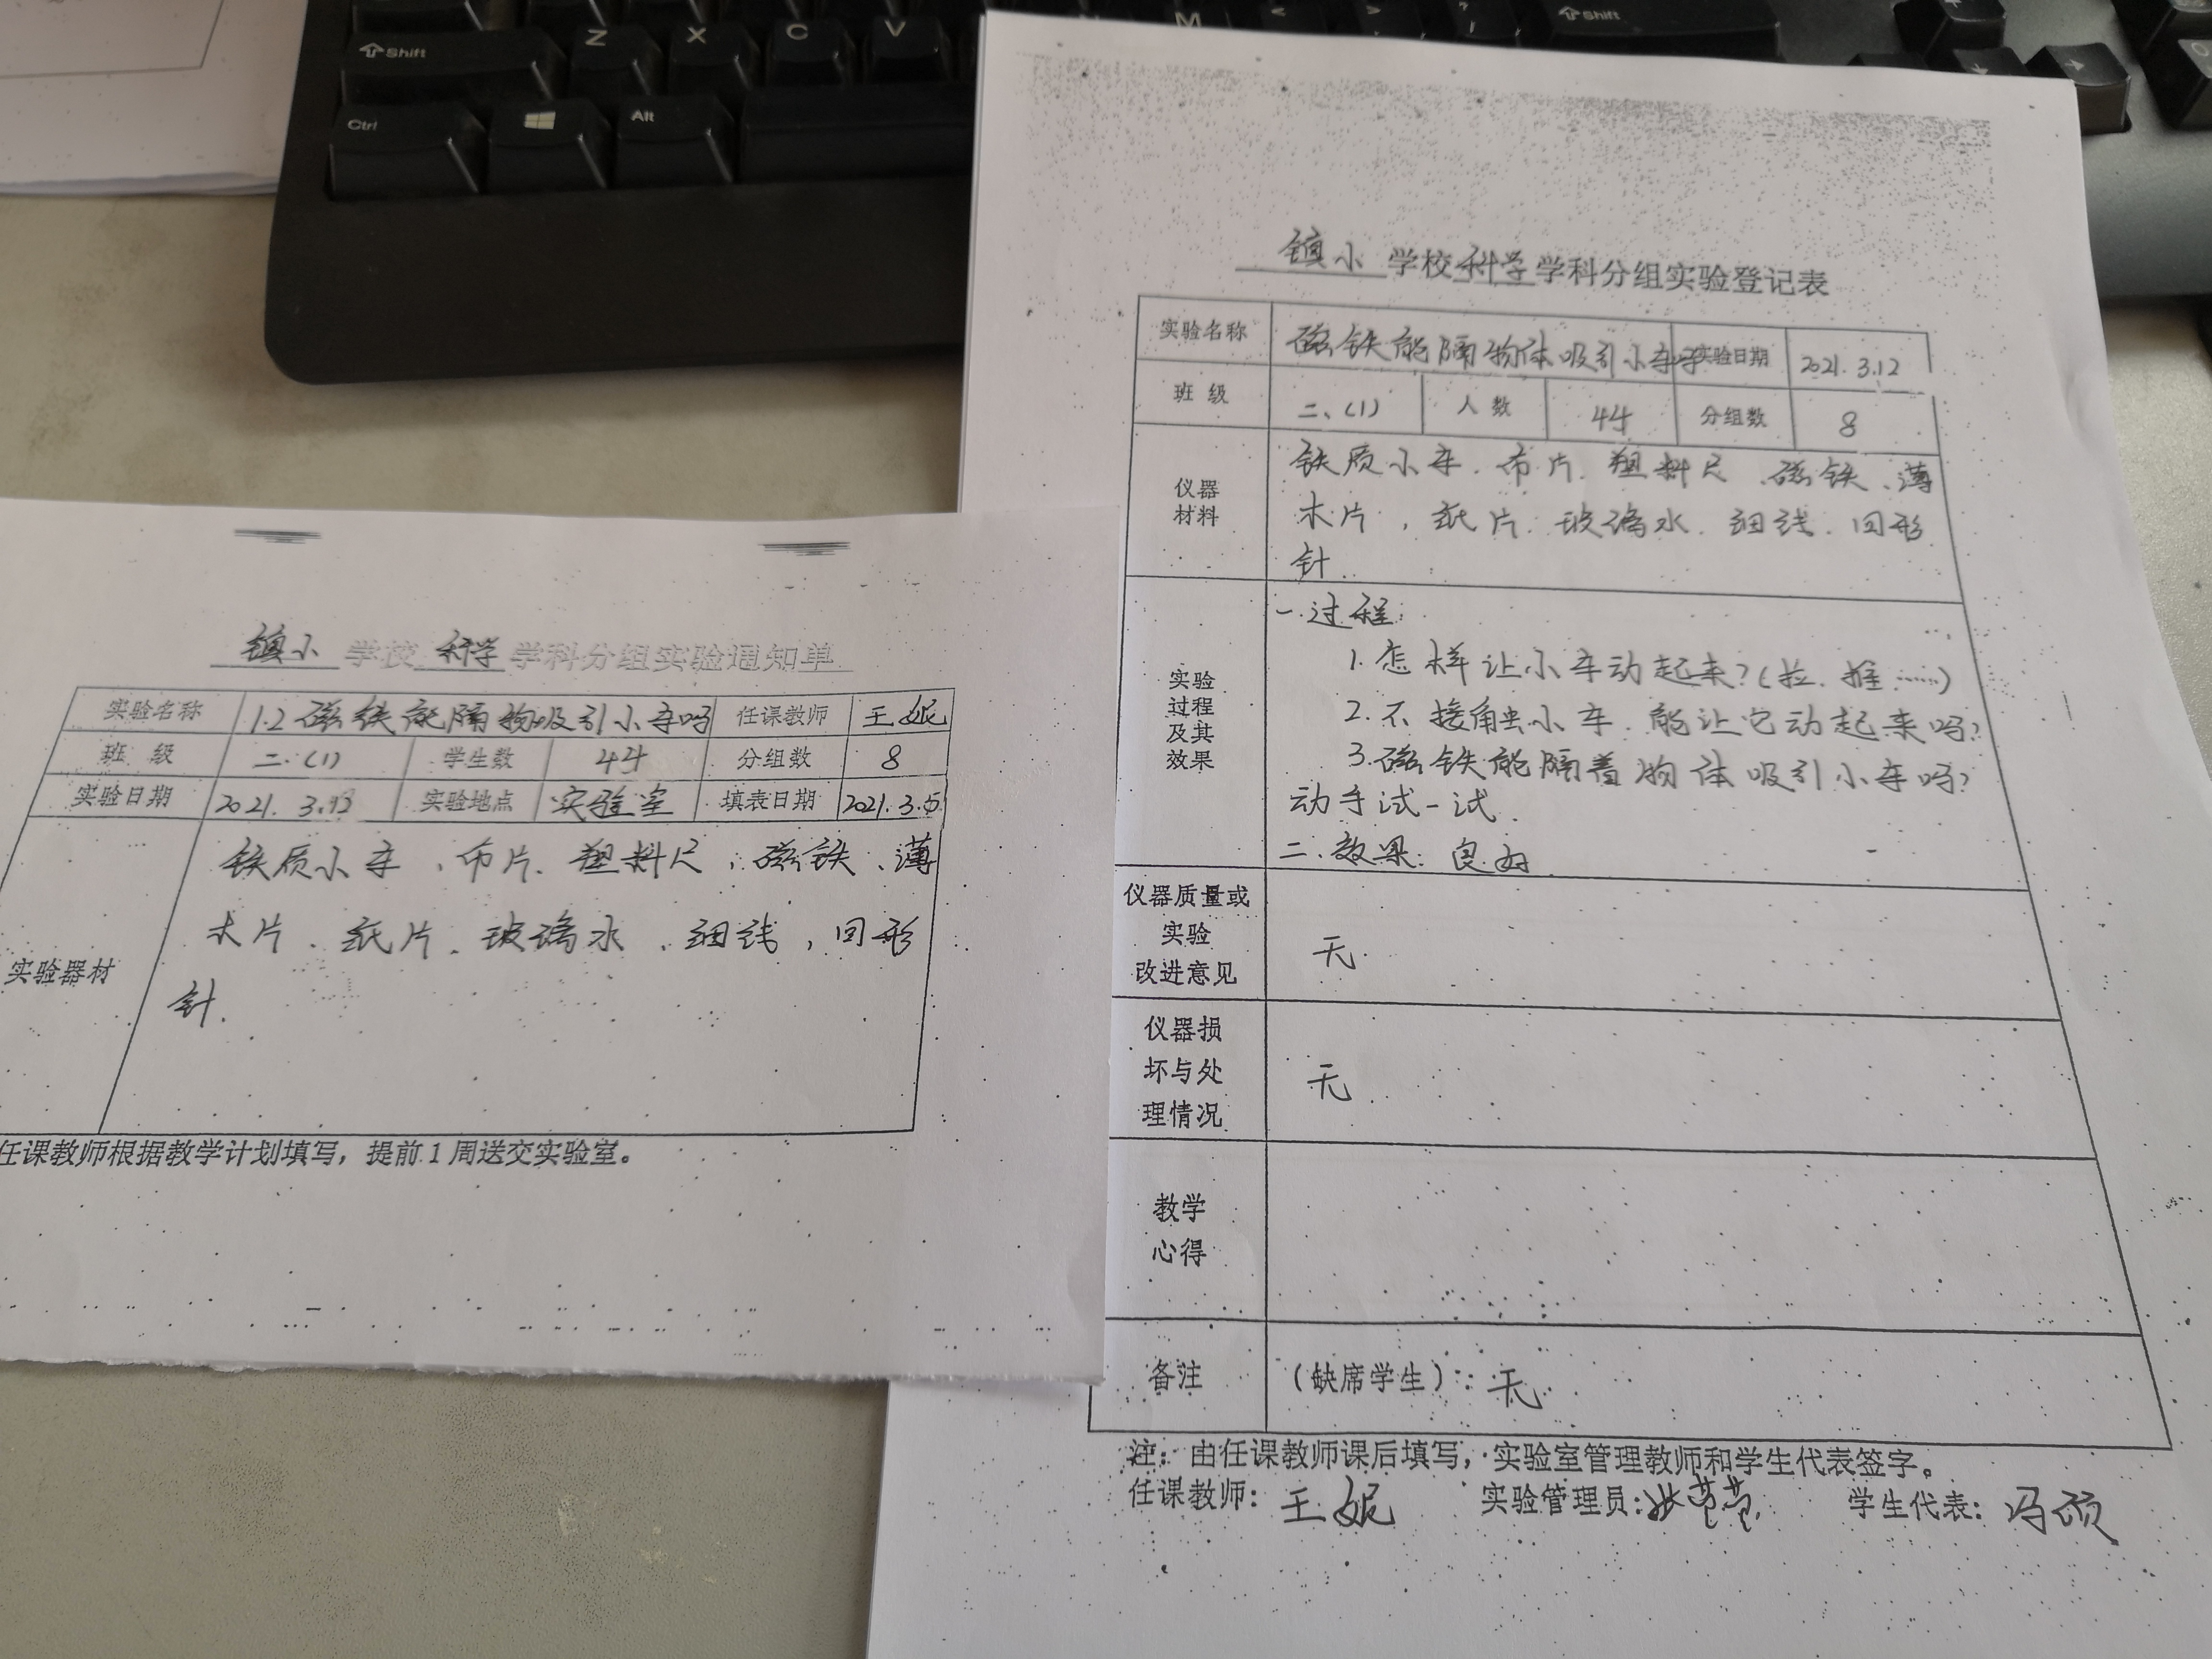 Shift
Z
X
C
V
M
Shift
Ctrl
Alt
镇小 学校 科学 学科分组实验通知单
实验名称 1.2 磁铁能隔物吸引小车吗 任课教师 王妮
班 级 二.(1) 学生数 44 分组数 8
实验日期 2021. 3.12 实验地点 实验室 填表日期 2021.3.5
实验器材
铁质小车、布片、塑料尺、磁铁、薄
木片、纸片、玻璃水、细线,回形
针.
任课教师根据教学计划填写,提前1周送交实验室。
镇小 学校 科学 学科分组实验登记表
实验名称 磁铁能隔物体吸引小车吗 实验日期 2021. 3.12
班 级 二、(1) 人 数 44 分组数 8
仪器
材料
铁质小车、布片、塑料尺、磁铁、薄
木片,纸片、玻璃水、细线、回形
针.
实验
过程
及其
效果
一.过程:
1.怎样让小车动起来?(拉、推……)
2.不接触小车,能让它动起来吗?
3.磁铁能隔着物体吸引小车吗?
动手试一试.
二.效果:良好.
仪器质量或
实验
改进意见
无.
仪器损
坏与处
理情况
无
教学
心得
备注 (缺席学生):无
注:由任课教师课后填写,实验室管理教师和学生代表签字。
任课教师:王妮 实验管理员: 学生代表:冯硕